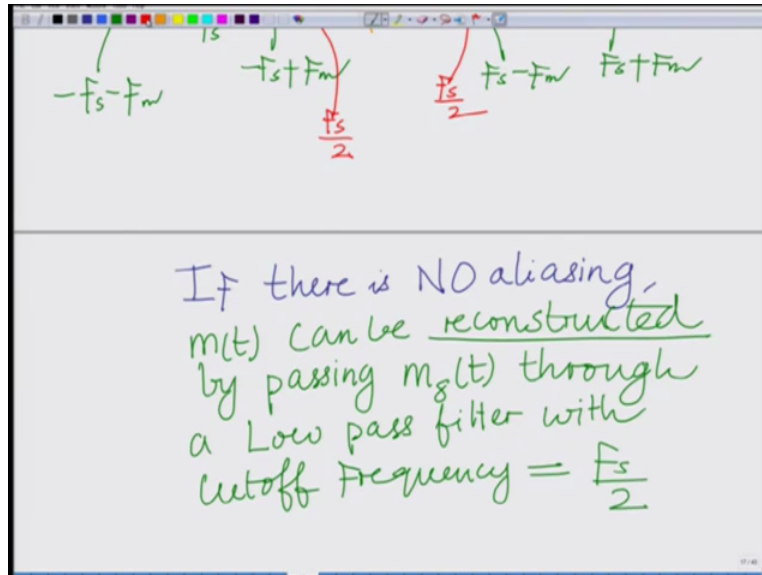 -Fs-Fm
-Fs+Fm
Fs/2
Fs/2
Fs-Fm
Fs+Fm
IF there is NO aliasing,
m(t) can be reconstructed
by passing mδ(t) through
a Low pass filter with
Cutoff Frequency = Fs/2